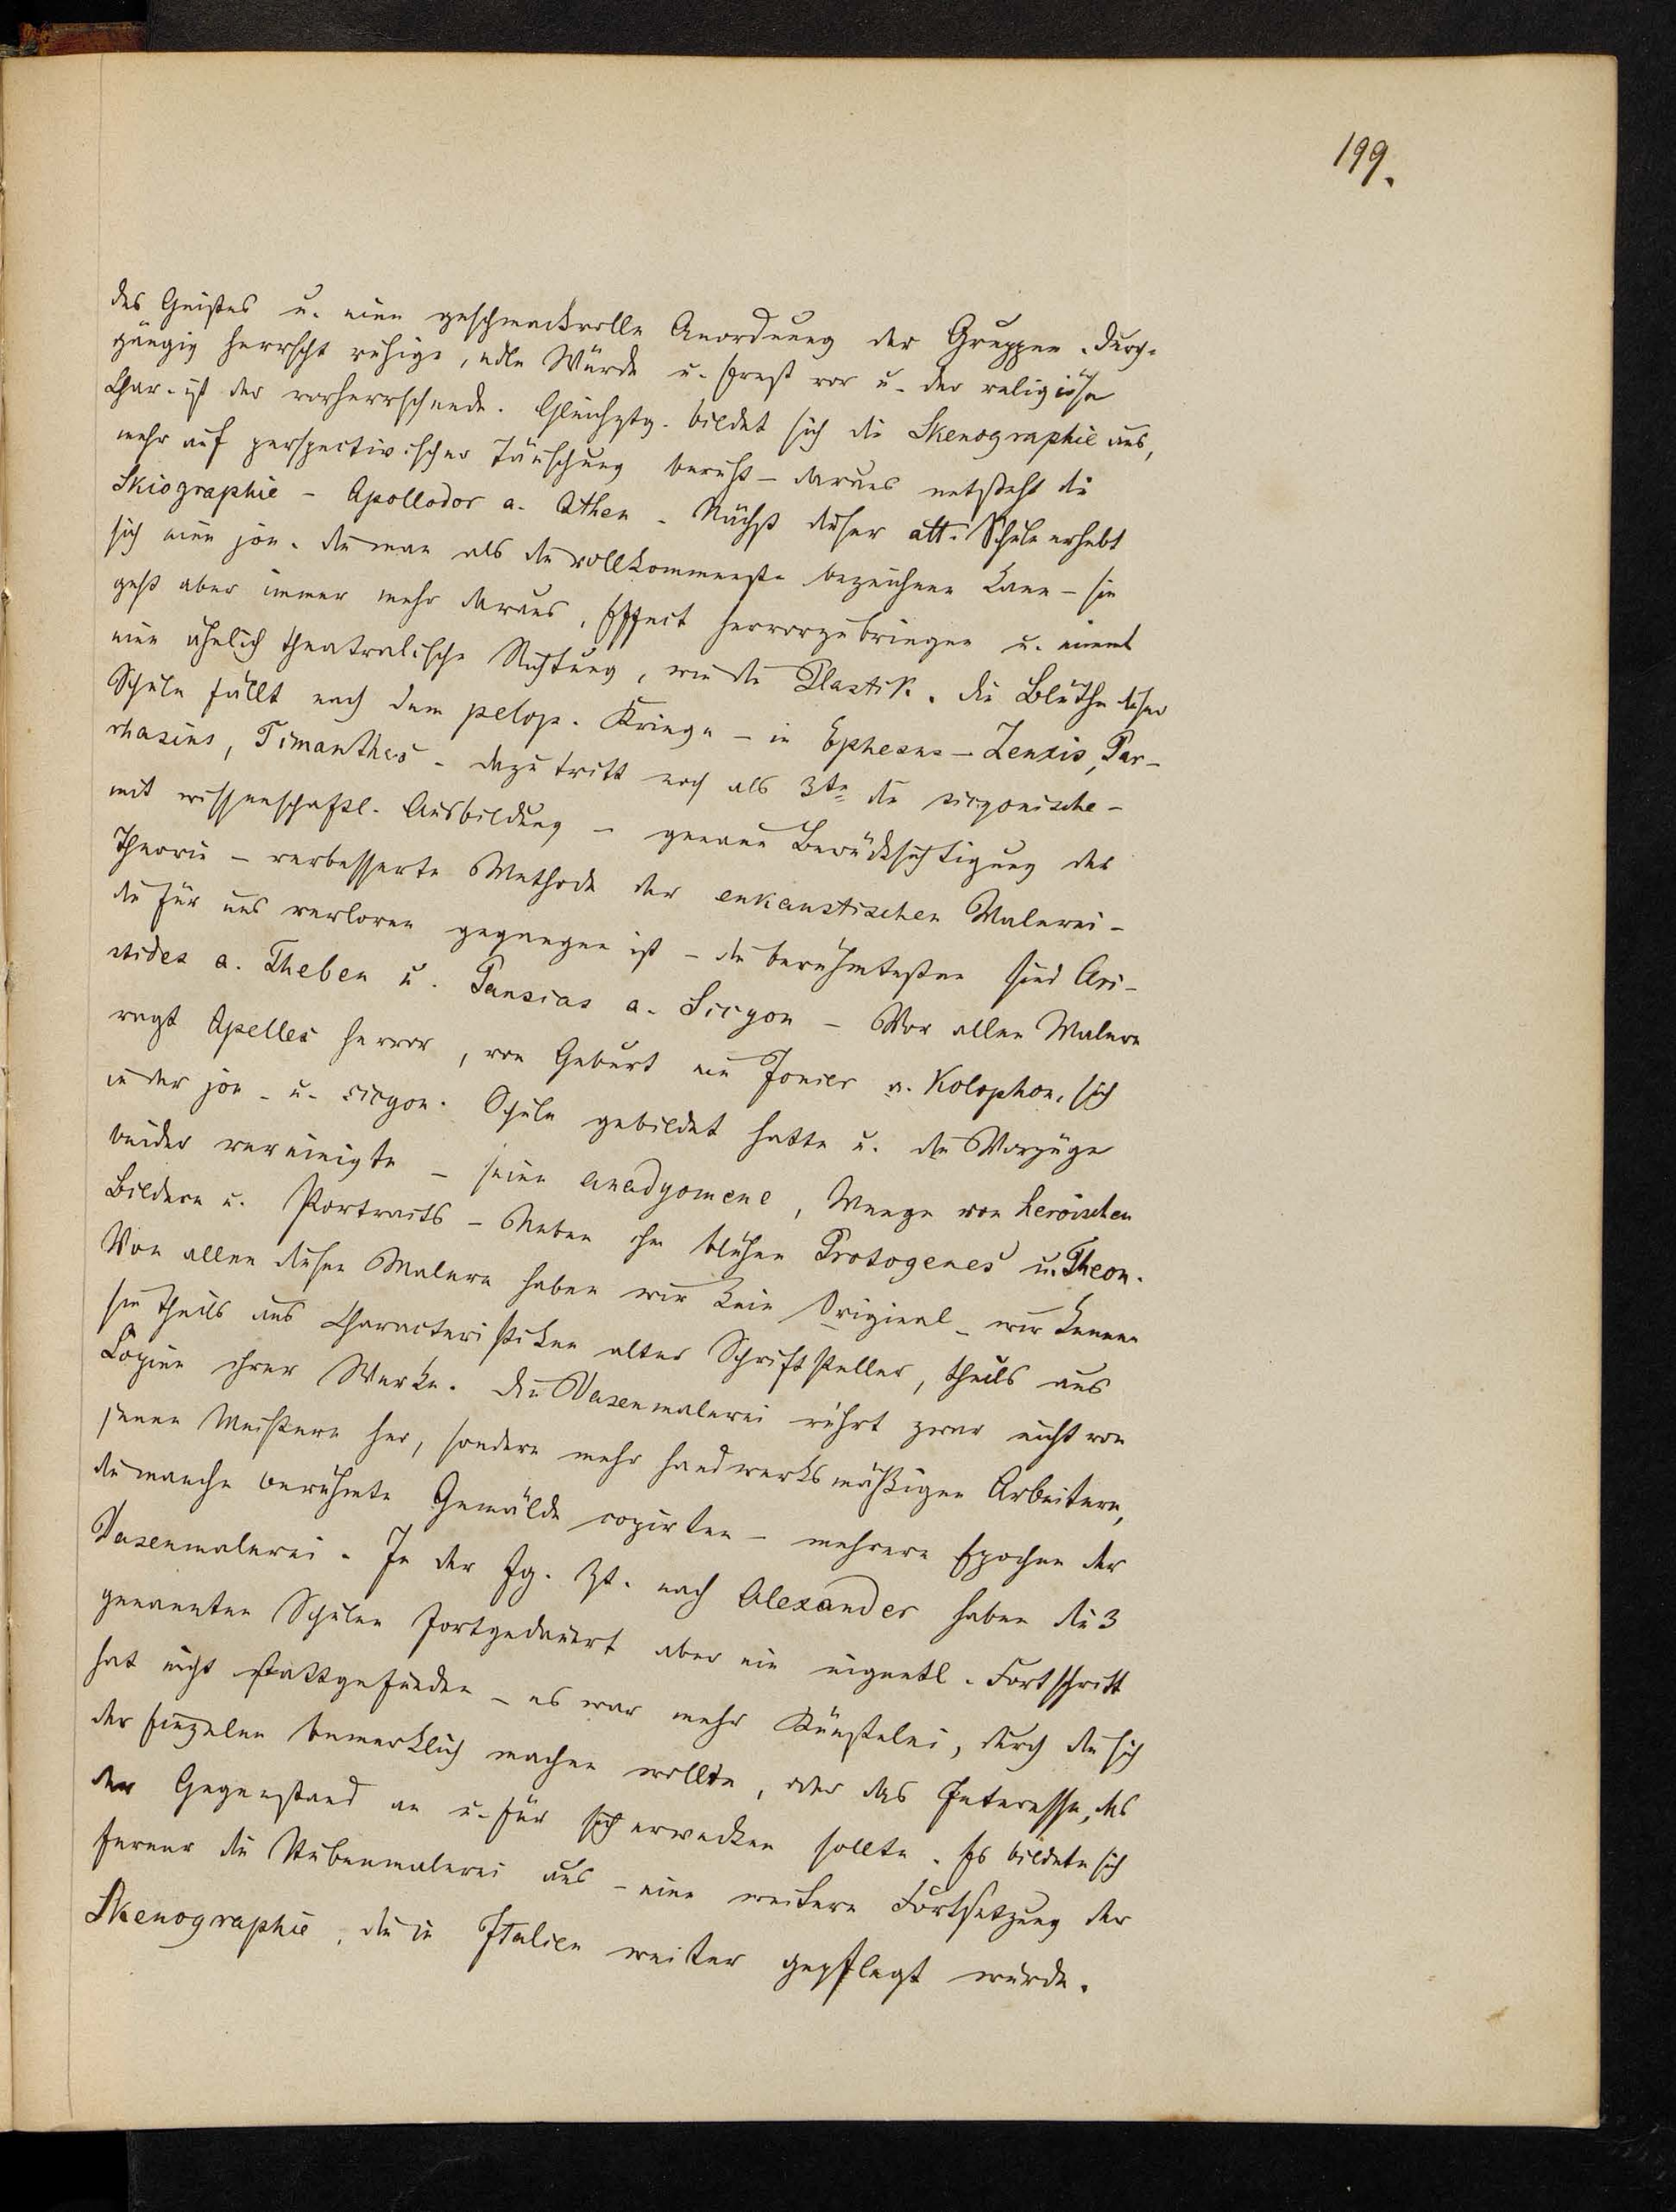 199.
des Geistes u. eine geschmackvolle Anordnung der Gruppen. Durch-
gängig herrscht ruhige, edle Würde u. Ernst vor u. der religiöse
Char. ist der vorherrschende. Gleichztg. bildet sich die Skenographie aus,
mehr auf perspectivischer Täuschung beruht – daraus entsteht die
Skiographie – Apollodor a. Athen. Nächst dieser att. Schule erhebt
sich eine jon. die man als die vollkommenste bezeichnen kann – sie
geht aber immer mehr daraus, Effect hervorzubringen u. nimmt
eine ähnlich theatralische Richtung, wie die Plastik. Die Blüthe dieser
Schule fällt nach dem pelop. Kriege – in Ephesus – Zeuxis, Par-
rhasius, Timanthes – dazu tritt noch als 3te die sicyonische –
mit wissenschaftl. Ausbildung – genaue Berücksichtigung der
Theorie – verbesserte Methode der enkaustischen Malerei –
die für uns verloren gegangen ist – die berühmtesten sind Ari-
stides a. Theben u. Pausias a. Sicyon – Vor allen Malern
ragt Apelles hervor, von Geburt ein Jonier a. Kolophon, sich
in der jon. u. sicyon. Schule gebildet hatte u. die Vorzüge
beider vereinigte – seine anadyomene, Menge von heroischen
Bildern u. Portraits – Neben ihm blühen Protogenes u. Theon.
Von allen diesen Malern haben wir kein Original – wir kennen
sie theils aus Characteristiken alter Schriftsteller, theils aus
Copien ihrer Werke. Die Vasenmalerei rührt zwar nicht von
jenen Meistern her, sondern mehr handwerksmäßigen Arbeitern,
die manche berühmte Gemälde copirten – mehrere Epochen der
Vasenmalerei. In der fg. Zt. nach Alexander haben die 3
genannten Schulen fortgedauert aber ein eigentl. Fortschritt
hat nicht stattgefunden – es war mehr Künstelei, durch die sich
der Einzelne bemerklich machen wollte, oder das Interesse, das
der Gegenstand an u. für sich erwecken sollte. Es bildete sich
ferner die Stubenmalerei aus – eine weitere Fortsetzung der
Skenographie, die in Italien weiter gepflegt wurde.